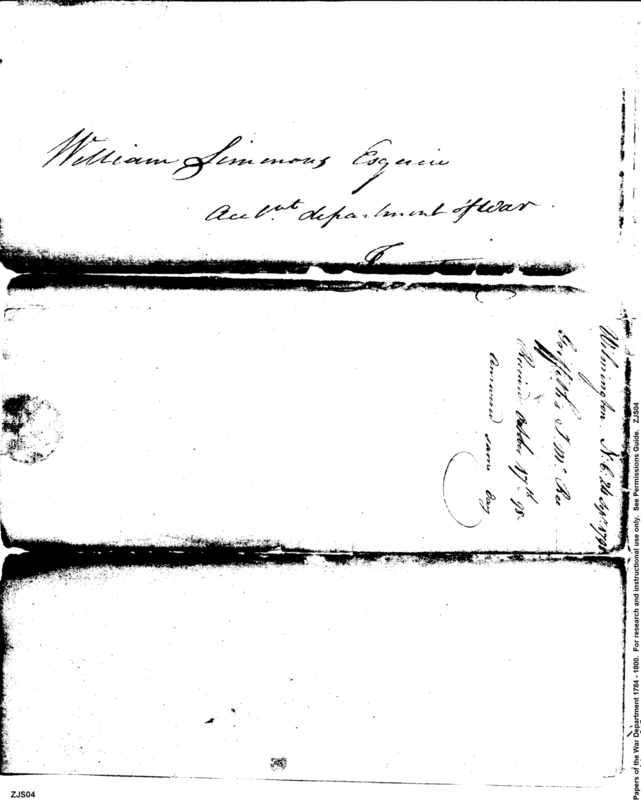 William Simmons Esquire
Acct.nt department of War
Wilmington N.C. 24 Sept 1798
Griffith J. McRee
Received October 17th 98
Answered same day
Papers of the War Department 1784 - 1800. For research and instructional use only. See Permissions Guide. ZJS04
ZJS04